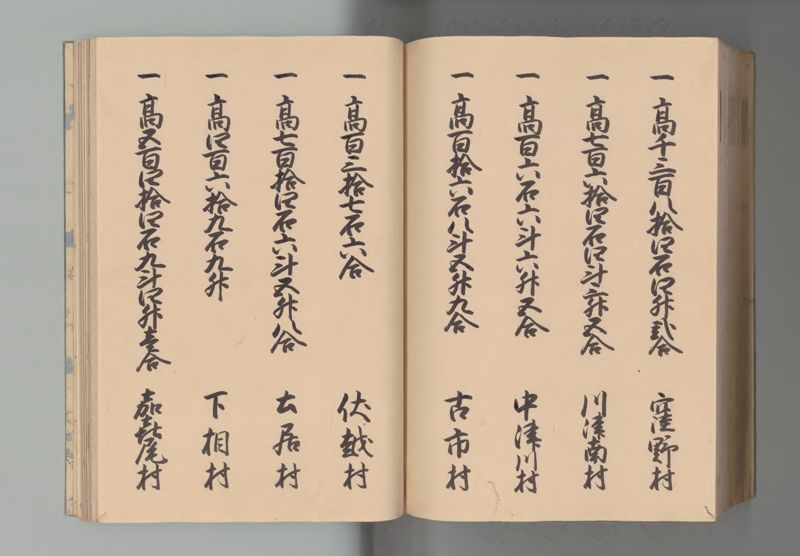 一 高千三百八拾四石四升弐合 窪野村
一 高七百六拾四石四斗六升五合 川津南村
一 高百六石六斗六升五合 中津川村
一 高百拾六石八斗五升九合 古市村
一 高百三拾七石六合 伏越村
一 高七百拾四石六斗五升八合 土居村
一 高四百六拾九石九升 下相村
一 高五百四拾四石九斗四升壱合 嘉喜尾村